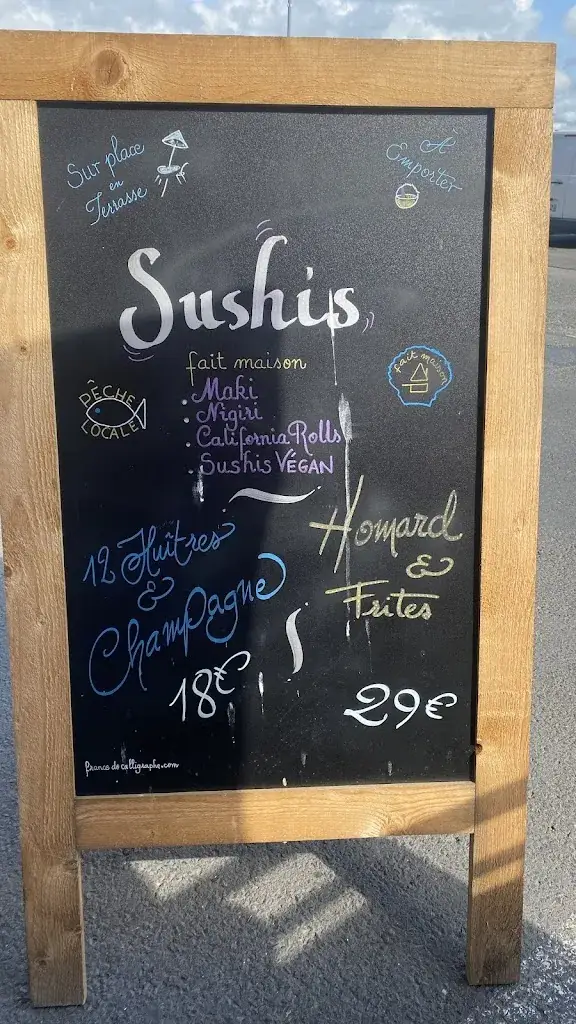 Sur place
en
Terrasse
À
Emporter
Sushis
fait maison
. Maki
. Nigiri
. California Rolls
. Sushis VÉGAN
PÊCHE
LOCALE
fait maison
12 Huîtres
&
Champagne
18€
Homard
&
Frites
29€
francs de calligraphe.com